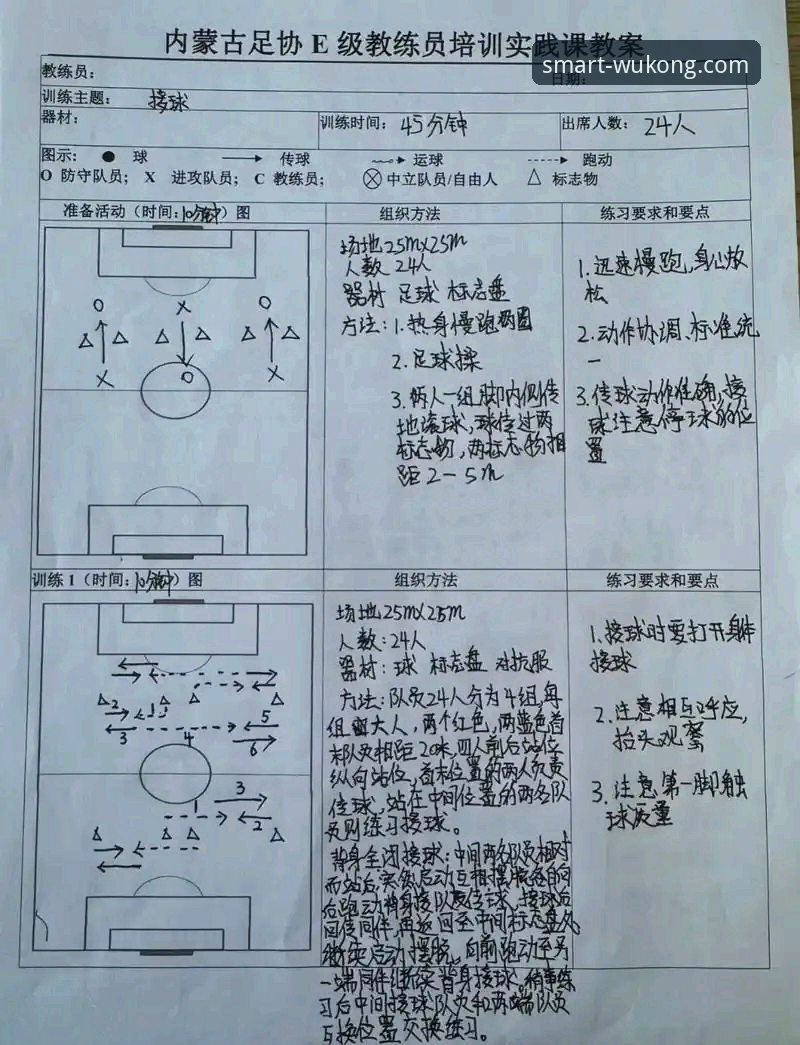 内蒙古足协 E 级教练员培训实践课教案
smart-wukong.com
教练员：
日期：
训练主题： 接球
器材：
训练时间： 45分钟
出席人数： 24人
图示： ● 球 传球 运球 跑动
O 防守队员； X 进攻队员； C 教练员； 中立队员/自由人 △ 标志物
准备活动（时间：10分钟）图
组织方法
练习要求和要点
O X O
X O X
场地25m×25m
人数 24人
器材 足球 标志盘
方法：1.热身慢跑两圈
2.足球操
3.俩人一组脚内侧传
地滚球，球传过两
标志物，两标志物相
距2－5m
1.迅速慢跑，身心放
松
2.动作协调、标准统
一
3.传球动作准确，接
球注意停球的位
置
训练 1（时间：10分钟）图
组织方法
练习要求和要点
2 1 5
3 4 6
3
1 2
场地25m×25m
人数：24人
器材：球 标志盘 对抗服
方法：队员24人分为4组，每
组 六人，两个红色，两蓝色首
末队员相距20米，四人前后站位
纵向站位，首末位置的两人负责
传球，站在中间位置的两名队
员则练习接球。
背身全闭接球：中间两名队员相对
而站后，突然启动互相摆脱各自向
后跑动背身接队友传球，接球后
回传同伴，再返回至中间标志盘处
继续启动摆脱，向前跑动至另
一端同伴继续背身接球。
习后中间接球队员和两端队员
互换位置交换练习。
1.接球时要打开身体
接球
2.注意相互呼应，
抬头观察
3.注意第一脚触
球质量